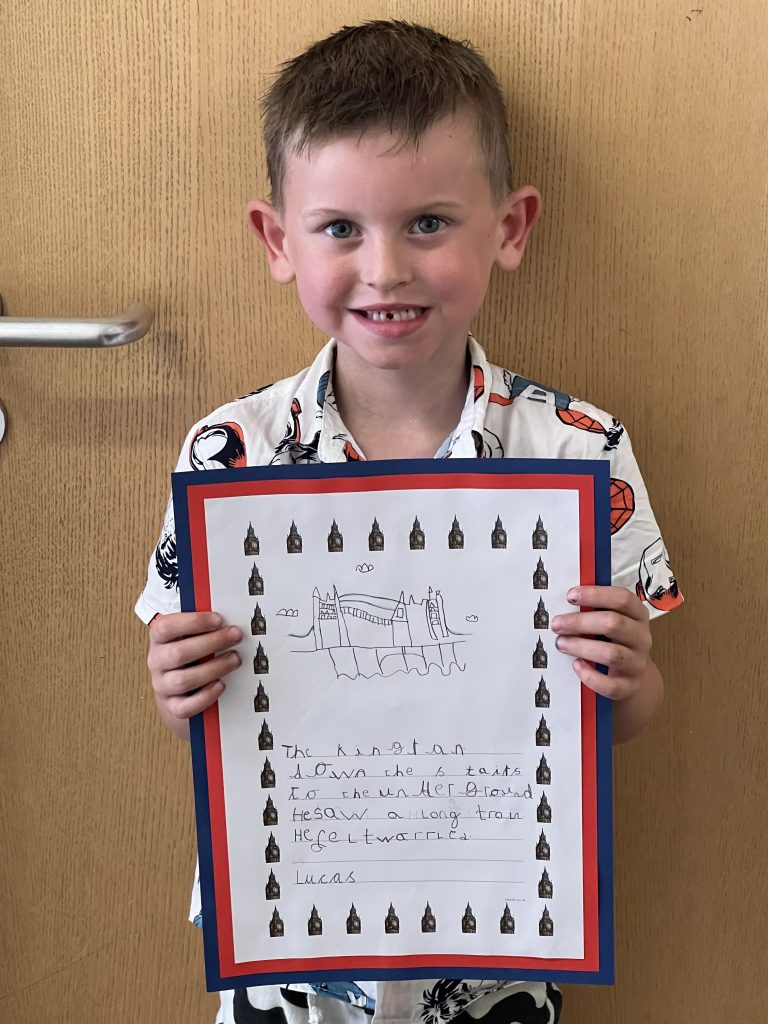 The king ran
down the stairs
to the underground
He saw a long train
He felt worried.
Lucas